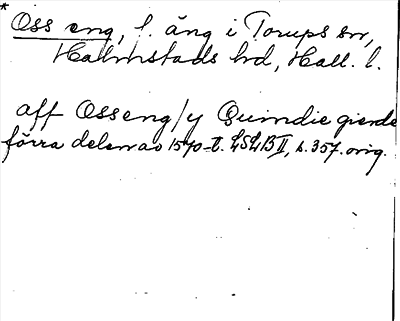 * Oss eng, f. äng i Torups sn,
Halmstads hd, Hall. l.
aff Osseng / y Quindie gierde
förra delen av 1570-t. LSLB II, s. 357. orig.